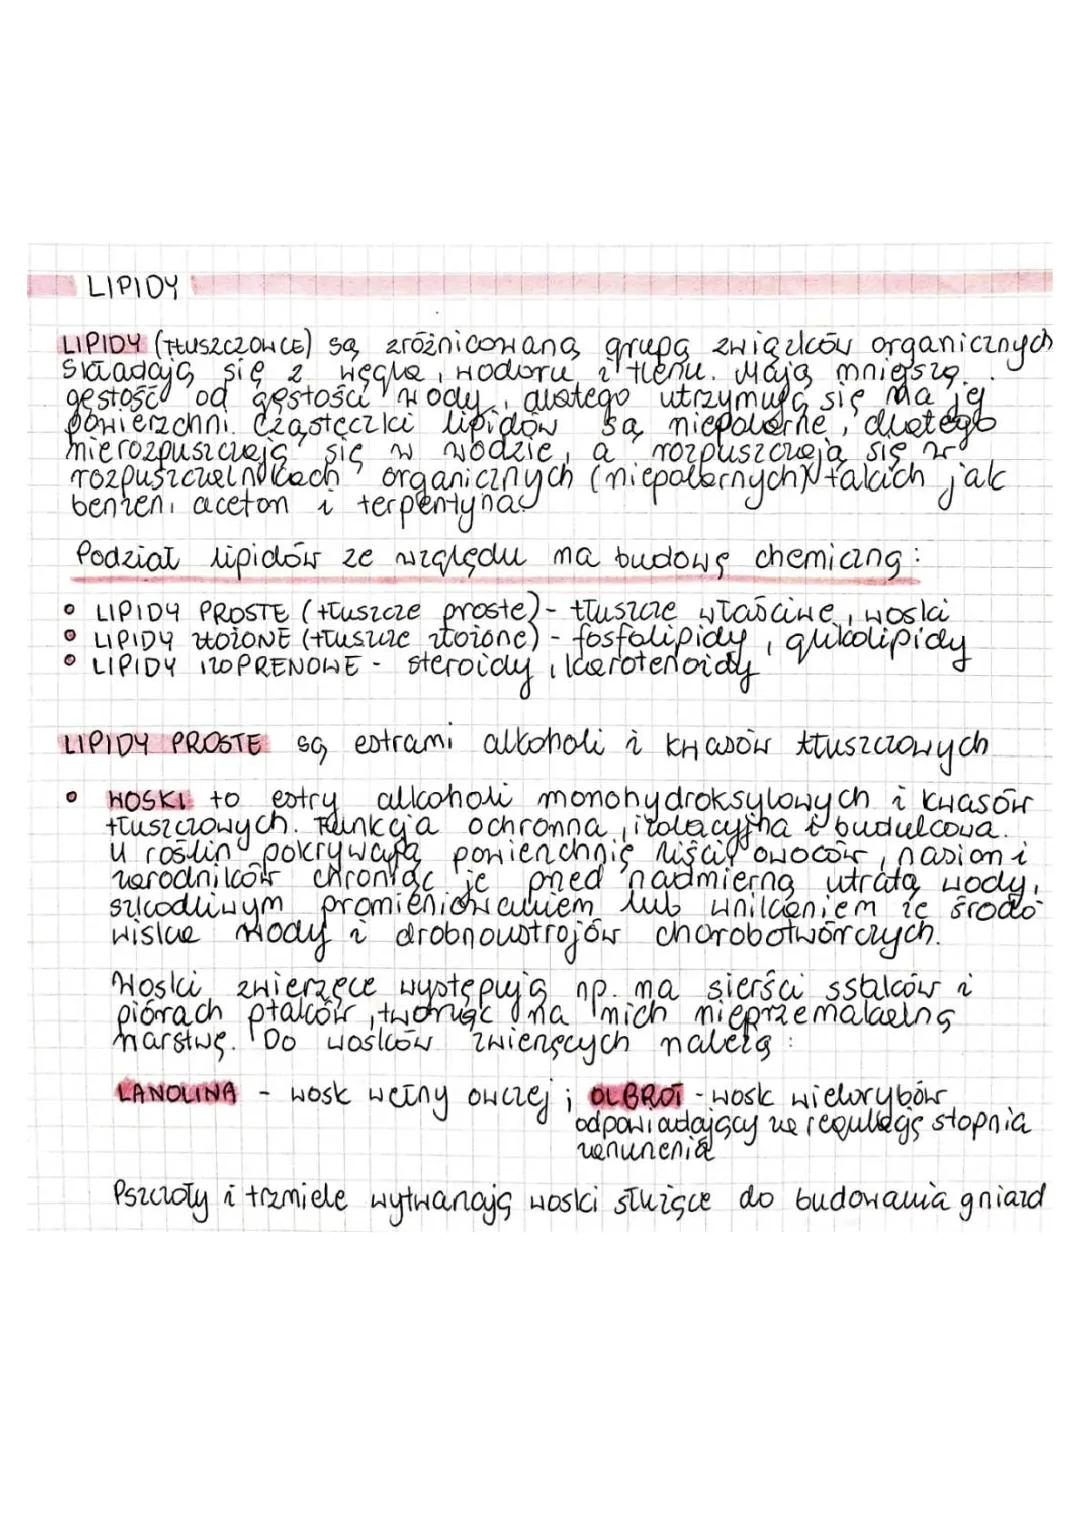 LIPIDY
LIPIDY (TŁUSZCZOWCE) są zróżnicowaną grupą związków organicznych
Składają się z węgla, wodoru i tlenu. Mają mniejszą
gęstość od gęstości wody, dlatego utrzymują się na jej
powierzchni. Cząsteczki lipidów są niepolarne, dlatego
nierozpuszczają się w wodzie, a rozpuszczają się w
rozpuszczalnikach organicznych (niepolarnych) takich jak
benzen, aceton i terpentyna
Podział lipidów ze względu na budowę chemiczną:
• LIPIDY PROSTE (tłuszcze proste) - tłuszcze właściwe, woski
• LIPIDY ZŁOŻONE (tłuszcze złożone) - fosfolipidy, glikolipidy
• LIPIDY IZOPRENOWE - steroidy, karotenoidy
LIPIDY PROSTE są estrami alkoholi i kwasów tłuszczowych
• WOSKI to estry alkoholi monohydroksylowych i kwasów
tłuszczowych. Funkcja ochronna, izolacyjna i budulcowa.
U roślin pokrywają powierzchnię liści, owoców, nasion i
zarodników chroniąc je przed nadmierną utratą wody,
szkodliwym promieniowaniem lub wnikaniem ze środo
wiska wody i drobnoustrojów chorobotwórczych.
Woski zwierzęce występują np. na sierści ssaków i
piórach ptaków, tworząc na nich nieprzemakalną
warstwę. Do wosków zwierzęcych należą:
LANOLINA - wosk wełny owczej; OLBROT - wosk wielorybów
odpowiadający za regulację stopnia
zanurzenia
Pszczoły i trzmiele wytwarzają woski służące do budowania gniazd